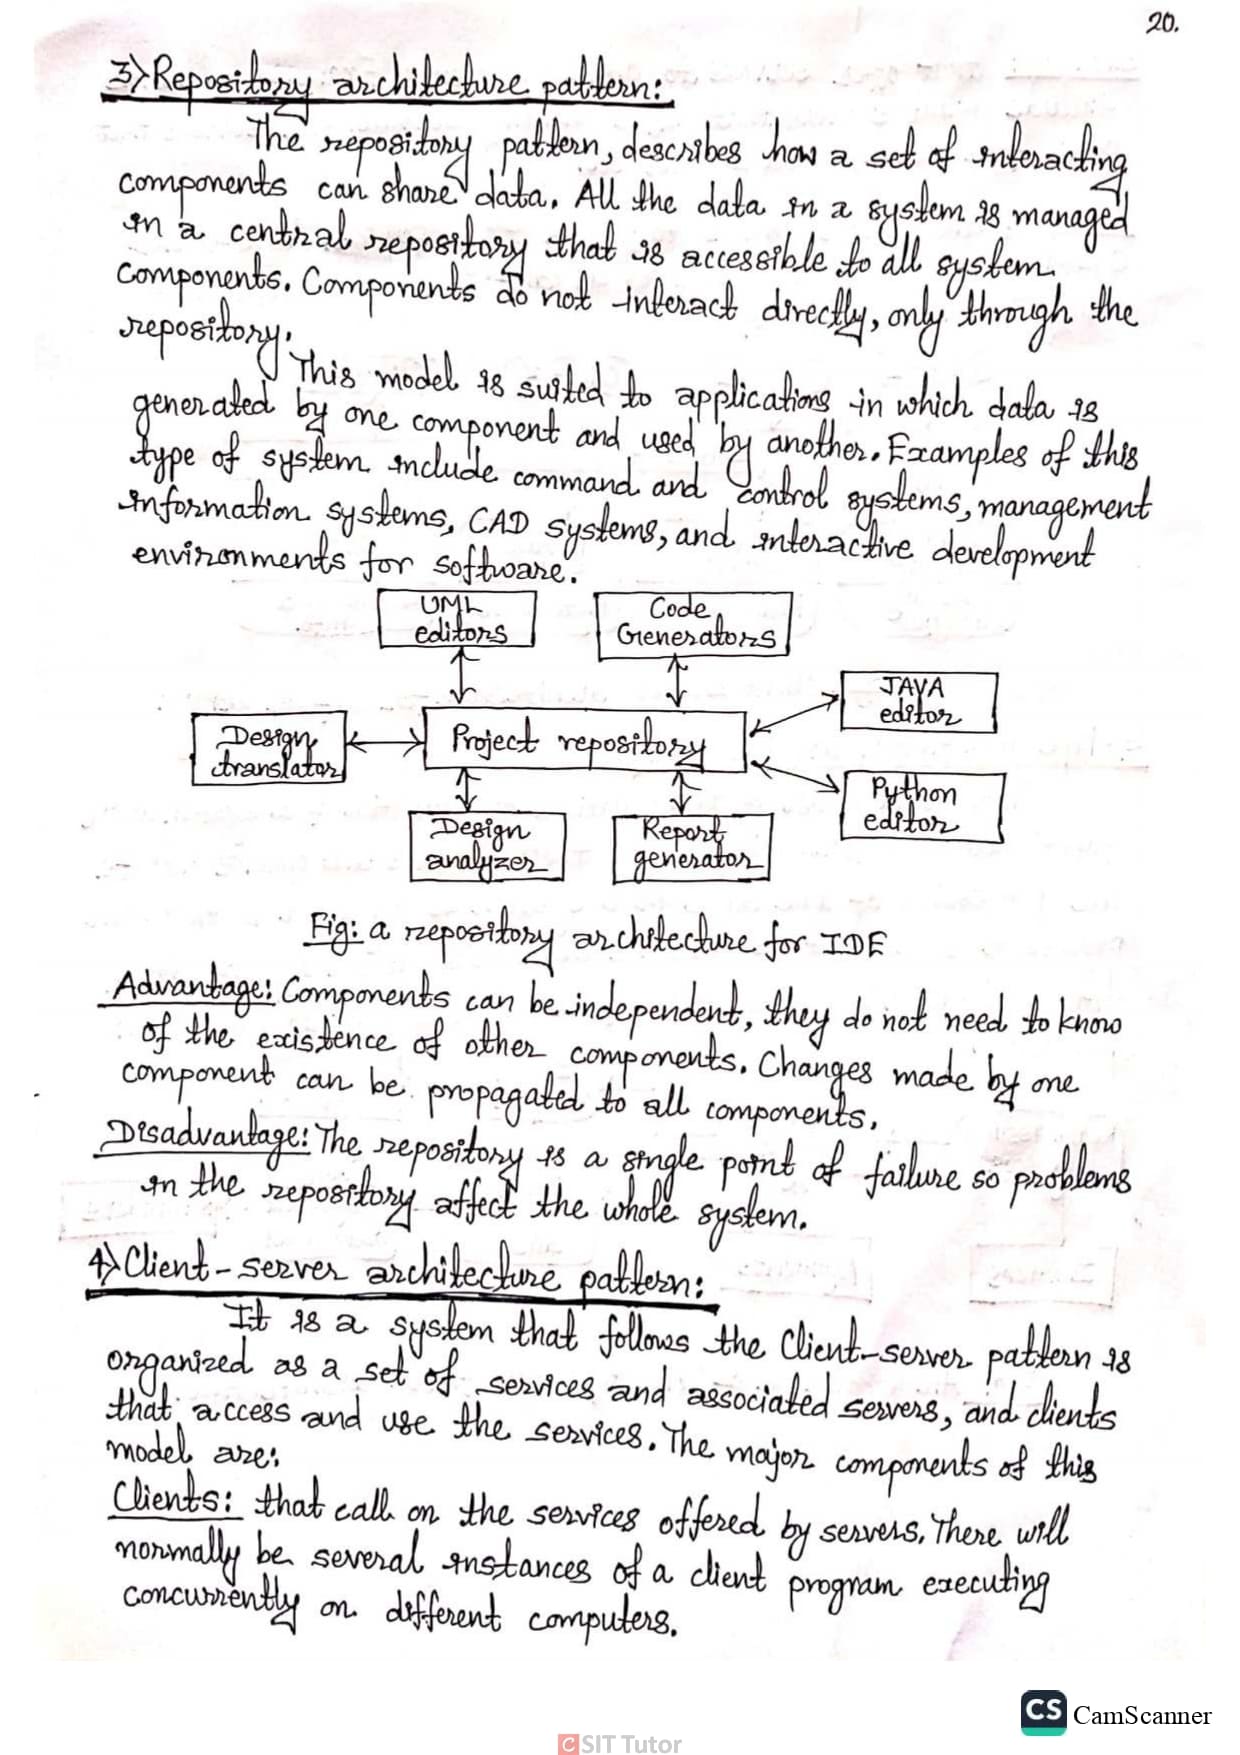 20.
3) Repository architecture pattern:
The repository pattern, describes how a set of interacting
components can share data. All the data in a system is managed
in a central repository that is accessible to all system
components. Components do not interact directly, only through the
repository.
This model is suited to applications in which data is
generated by one component and used by another. Examples of this
type of system include command and control systems, management
information systems, CAD systems, and interactive development
environments for software.
UML
editors
Code
Generators
JAVA
editor
Design
translator
Project repository
Python
editor
Design
analyzer
Report
generator
Fig: a repository architecture for IDE
Advantage: Components can be independent, they do not need to know
of the existence of other components. Changes made by one
component can be propagated to all components.
Disadvantage: The repository is a single point of failure so problems
in the repository affect the whole system.
4) Client-server architecture pattern:
It is a system that follows the Client-server pattern is
organized as a set of services and associated servers, and clients
that access and use the services. The major components of this
model are:
Clients: that call on the services offered by servers. There will
normally be several instances of a client program executing
concurrently on different computers.
CS CamScanner
CSIT Tutor